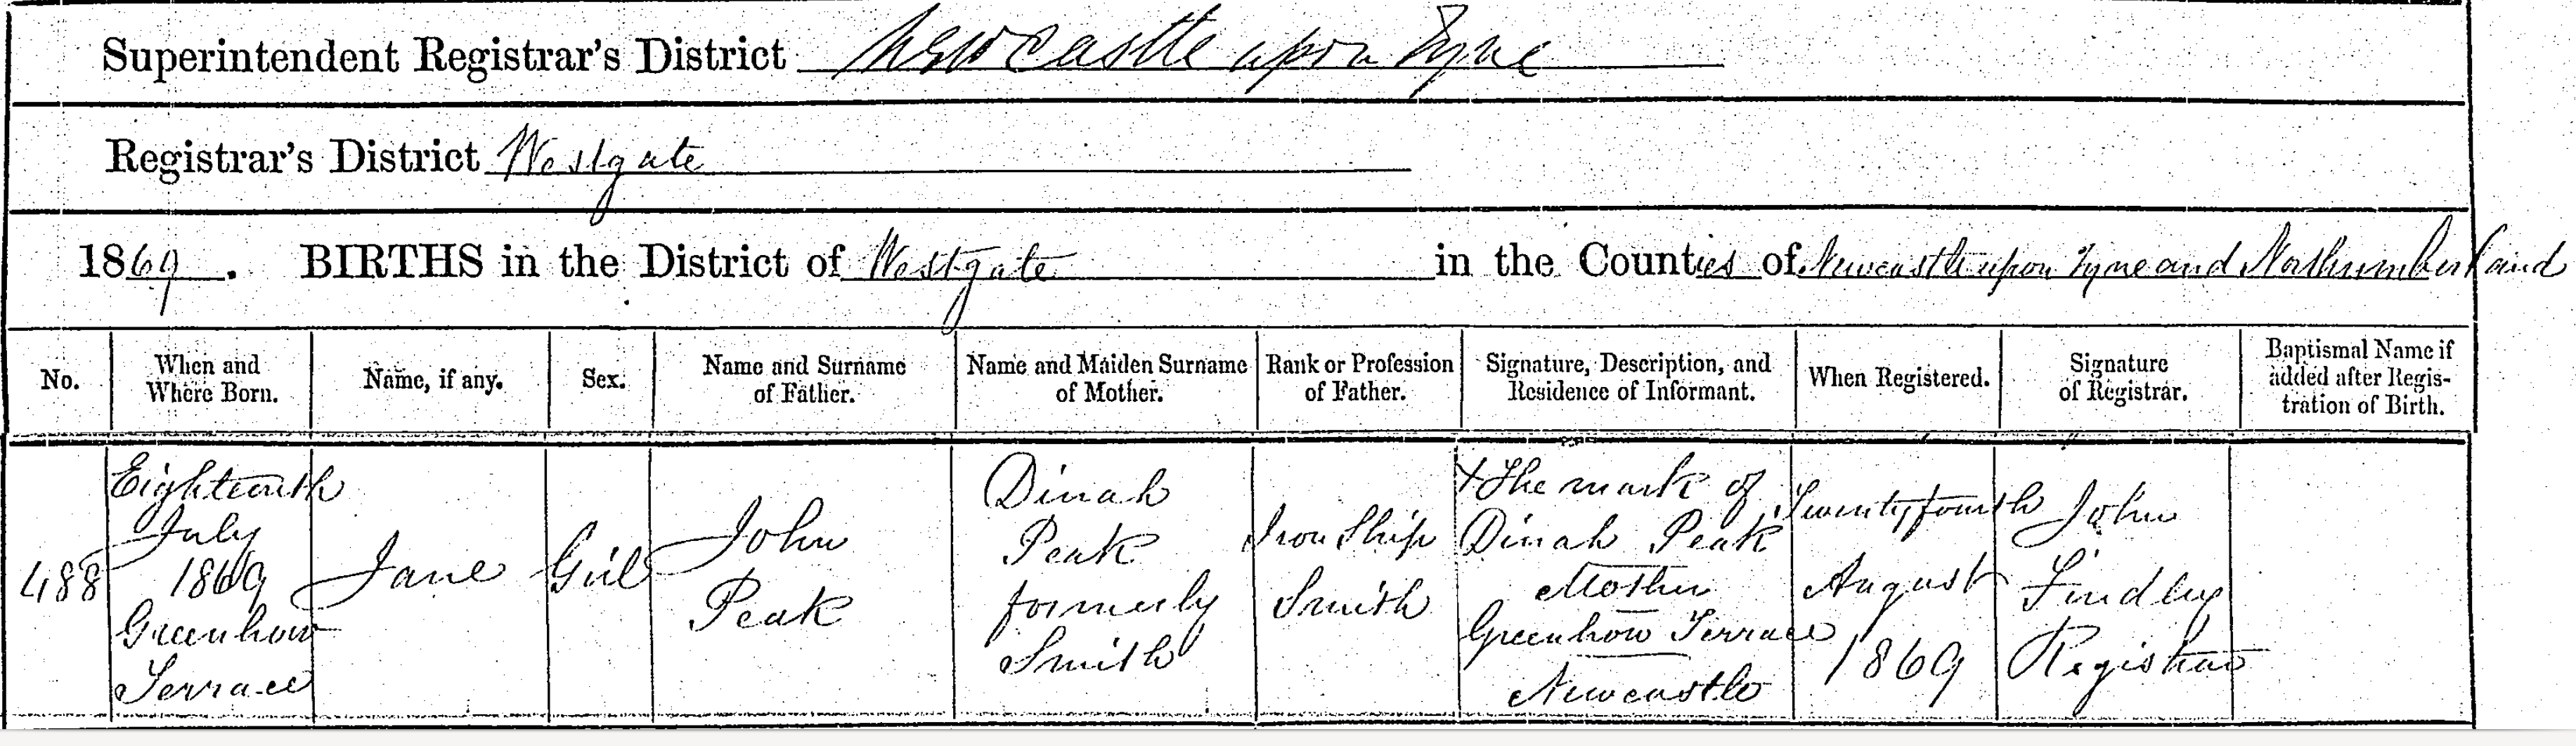 Superintendent Registrar's District Newcastle upon Tyne
Registrar's District Westgate
1869. BIRTHS in the District of Westgate in the Counties of Newcastle upon Tyne and Northumberland
No.
When and
Where Born.
Name, if any.
Sex.
Name and Surname
of Father.
Name and Maiden Surname
of Mother.
Rank or Profession
of Father.
Signature, Description, and
Residence of Informant.
When Registered.
Signature
of Registrar.
Baptismal Name if
added after Regis-
tration of Birth.
488
Eighteenth
July
1869
Greenhow
Terrace
Jane
Girl
John
Peak
Dinah
Peak
formerly
Smith
Iron Ship
Smith
X The mark of
Dinah Peak
Mother
Greenhow Terrace
Newcastle
Twenty fourth
August
1869
John
Findley
Registrar